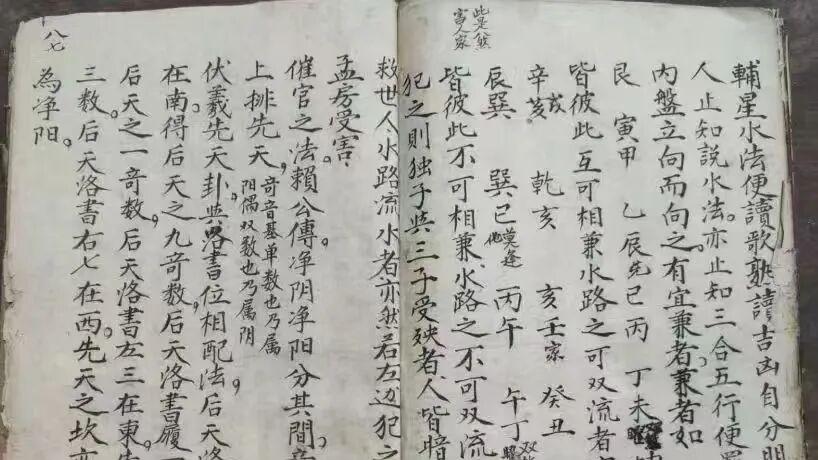 此是發
富人家
輔星水法便讀歌熟讀吉凶自分明
人止知說水法。亦止知三合五行便
內盤立向而向之。有宜兼者。兼者如
艮寅甲 乙辰 巳丙 丁未
皆彼此互可相兼水路之可双流者
辛戌亥 乾亥 亥壬 癸丑
辰巽 巽巳 丙午 午丁
皆彼此不可相兼、水路之不可双流
犯之則独子與三子受殃者、人皆暗
救世人、水路流水者亦然若左边犯之
孟房受害
催官之法、賴公傳。净阴净阳分其間。
上排先天、奇音基单数也乃属阳偶双数也乃属阴
伏羲先天卦。與洛書位相配法。后天
在南。得后天之九奇数。后天洛書履
后天之一奇数。后天洛書左三在東。
三数。后天洛書右七在西。先天之坎
為净阳。
八七